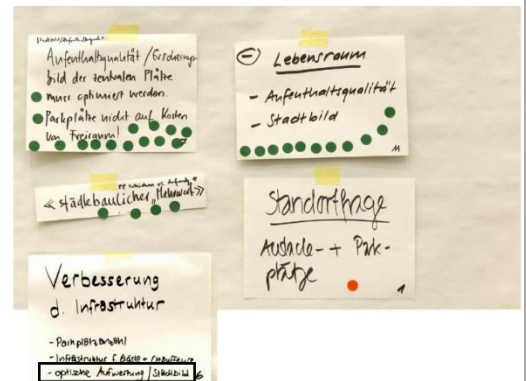 Aufenthaltsqualität / Erscheinungs-
bild der zentralen Plätze
muss optimiert werden.
Parkplätze nicht auf Kosten
von Freiraum!
Lebensraum
- Aufenthaltsqualität
- Stadtbild
11
« städtebaulicher „Mehrwert" »
Standortfrage
Auslade- + Park-
plätze
1
Verbesserung
d. Infrastruktur
- Parkplatzanzahl
- Infrastruktur f. Gäste + Chauffeure
- optische Aufwertung / Stadtbild
6